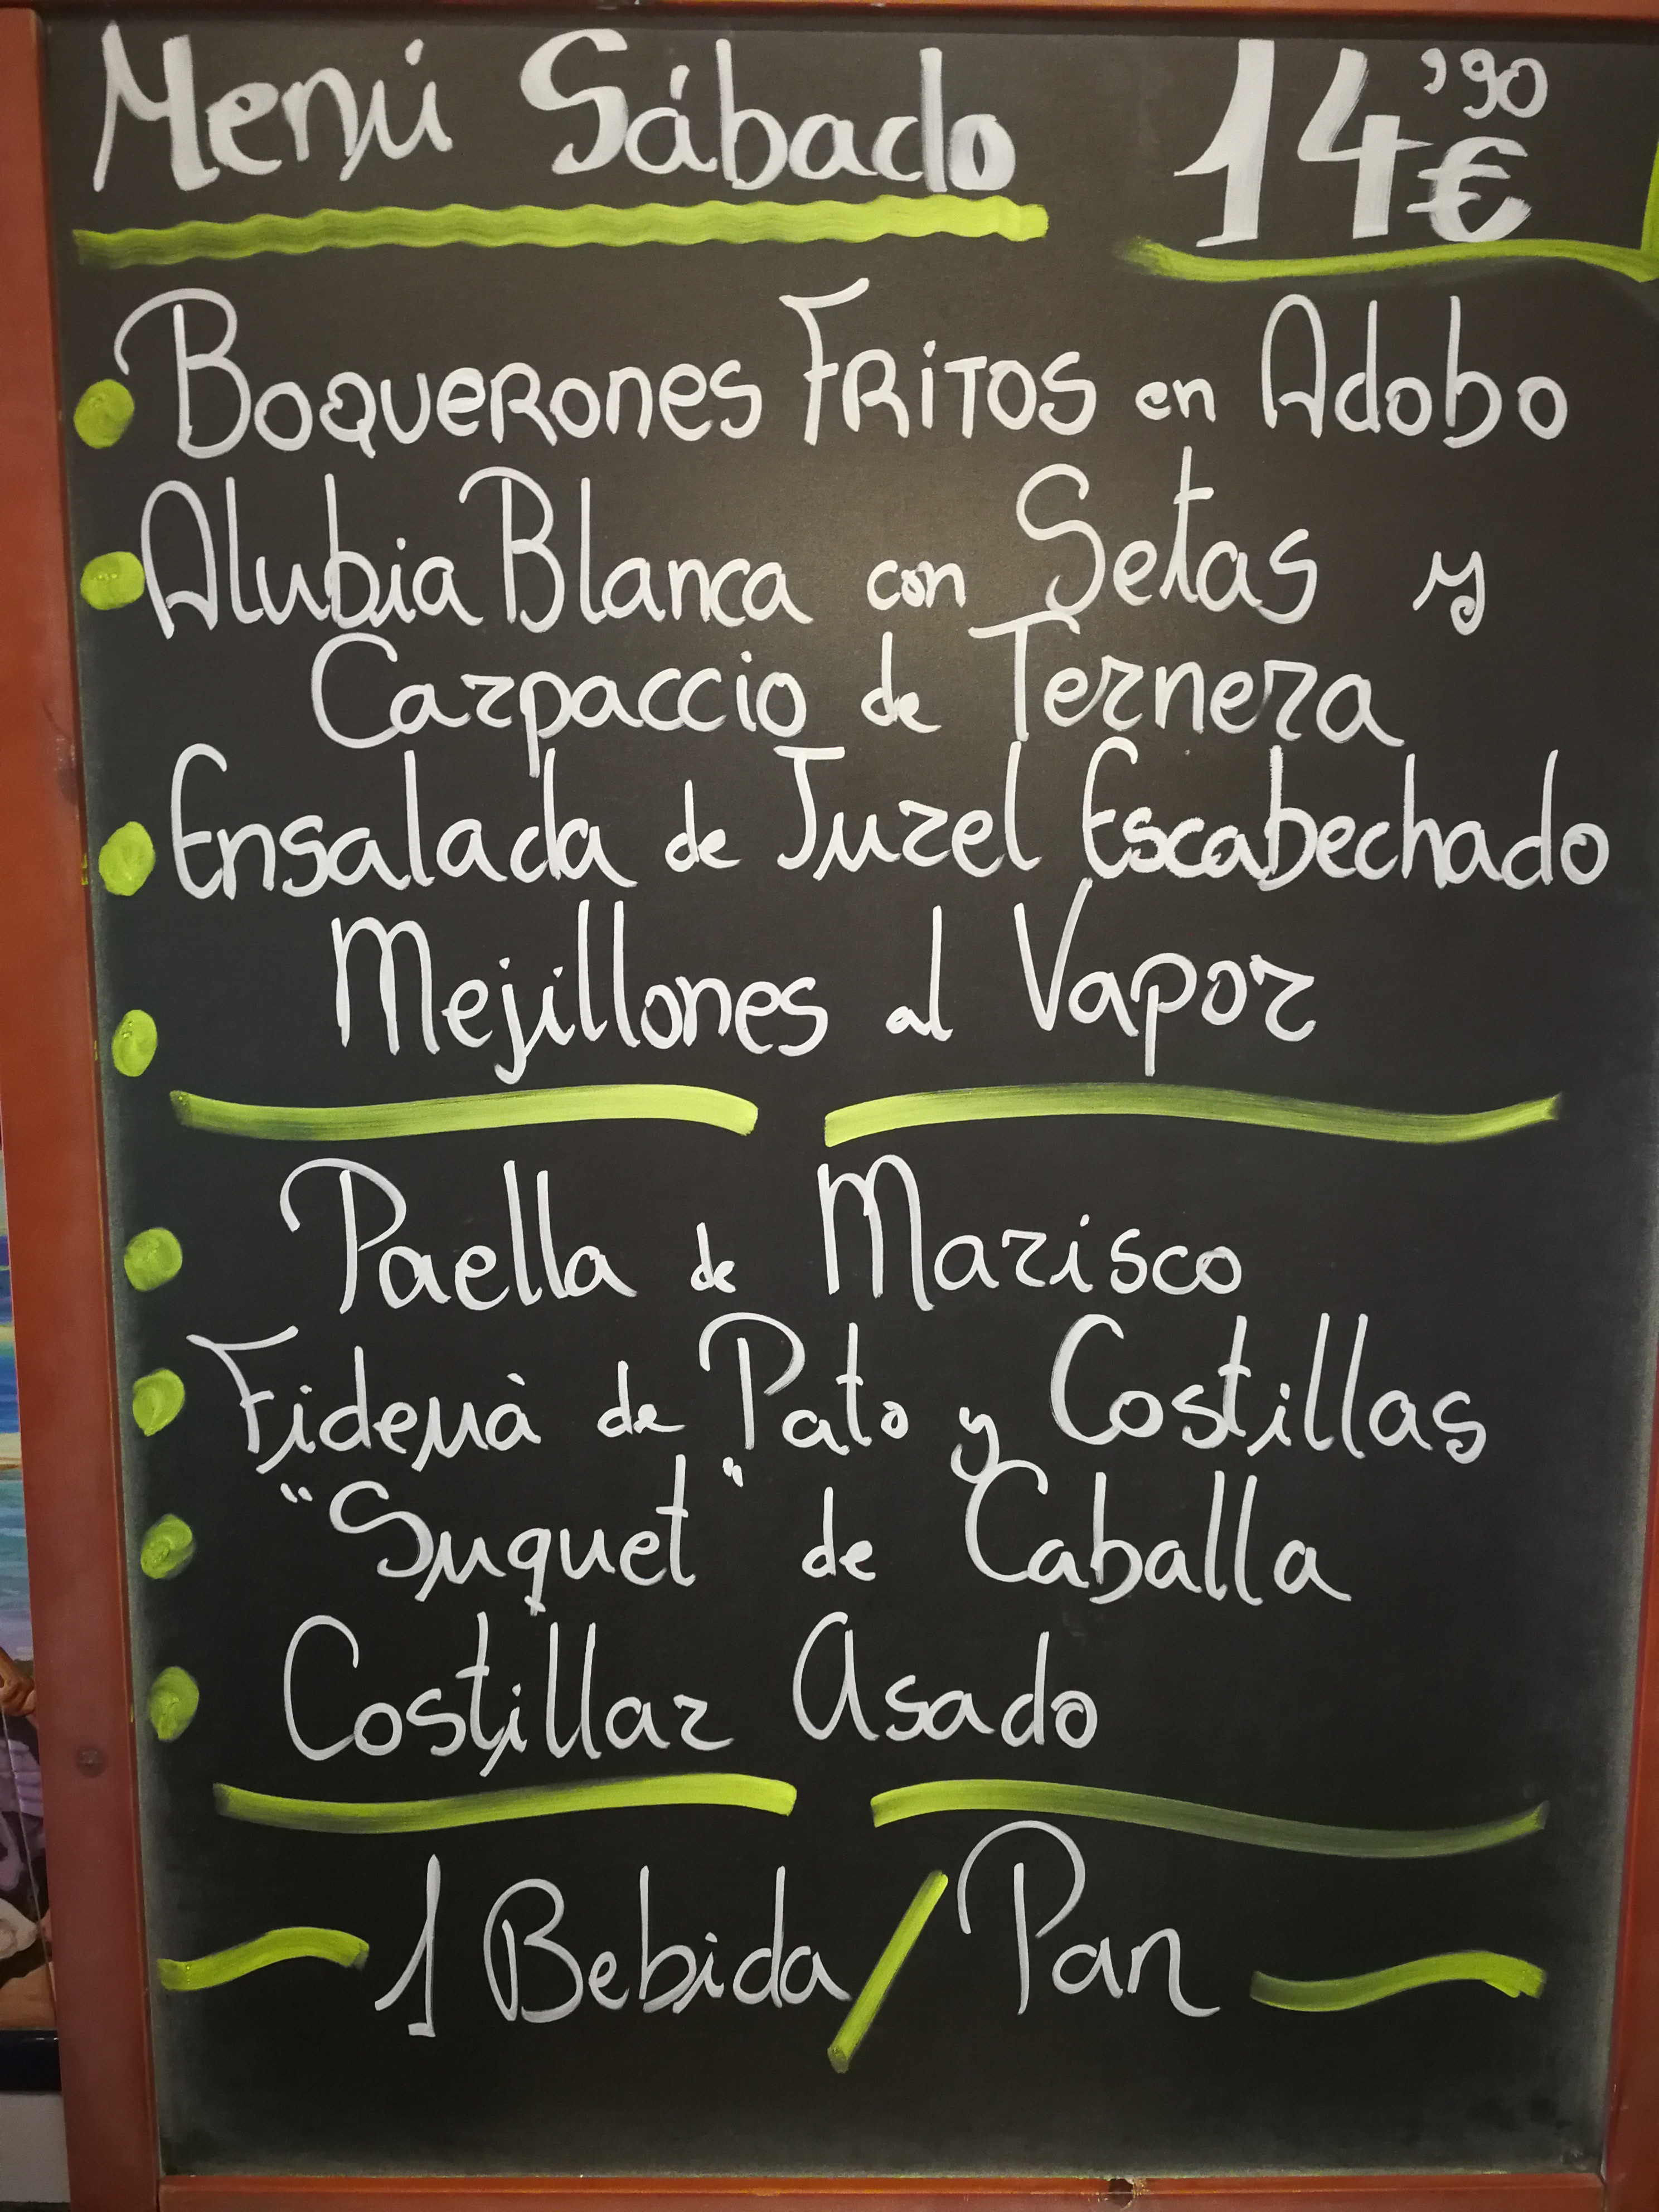 Menú Sábado 14,90 €
Boquerones Fritos en Adobo
Alubia Blanca con Setas y
Carpaccio de Ternera
Ensalada de Jurel Escabechado
Mejillones al Vapor
Paella de Marisco
Fideuà de Pato y Costillas
"Suquet" de Caballa
Costillar Asado
1 Bebida / Pan